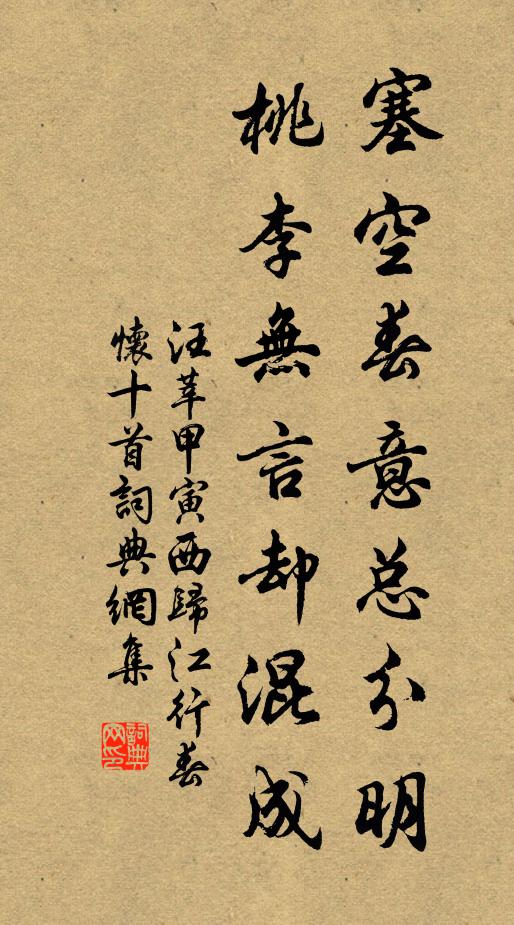 塞空春意总分明
桃李無言却混成
汪莘甲寅西歸江行春
懷十首詞典網集
詞典網印